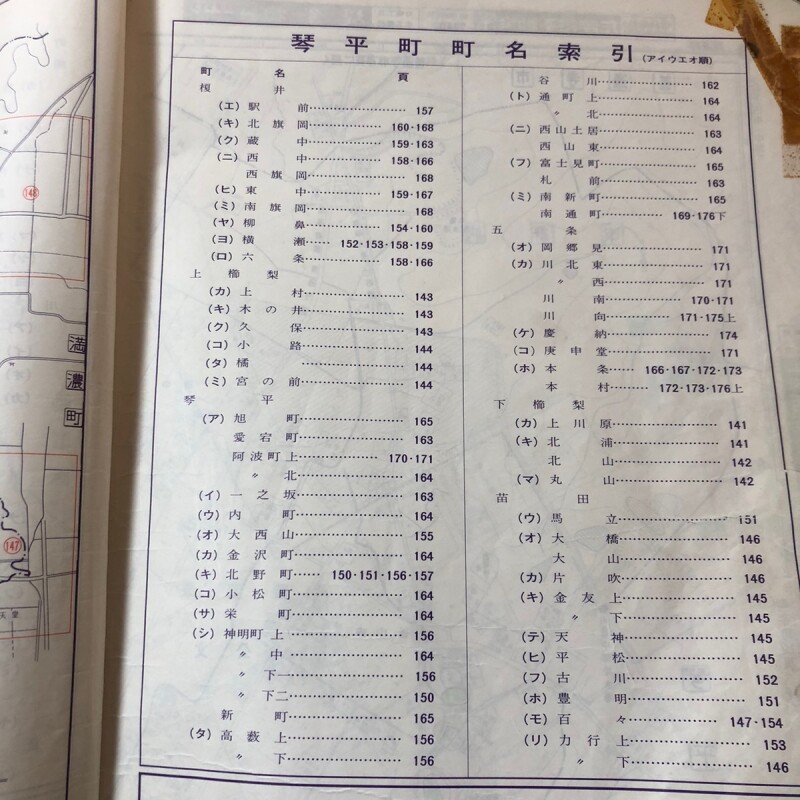 琴平町町名索引(アイウエオ順)
町 名 頁
榎 井
(エ) 駅 前 157
(キ) 北旗岡 160・168
(ク) 蔵 中 159・163
(ニ) 西 中 158・166
西旗岡 168
(ヒ) 東 中 159・167
(ミ) 南旗岡 168
(ヤ) 柳 鼻 154・160
(ヨ) 横 瀬 152・153・158・159
(ロ) 六 条 158・166
上櫛梨
(カ) 上 村 143
(キ) 木の井 143
(ク) 久 保 143
(コ) 小 路 144
(タ) 橘 144
(ミ) 宮の前 144
琴 平
(ア) 旭 町 165
愛宕町 163
阿波町上 170・171
〃 北 164
(イ) 一之坂 163
(ウ) 内 町 164
(オ) 大西山 155
(カ) 金沢町 164
(キ) 北野町 150・151・156・157
(コ) 小松町 164
(サ) 栄 町 164
(シ) 神明町上 156
〃 中 164
〃 下一 156
〃 下二 150
新 町 165
(タ) 高藪上 156
〃 下 156
谷 川 162
(ト) 通町上 164
〃 北 164
(ニ) 西山土居 163
西山東 164
(フ) 富士見町 165
札 前 163
(ミ) 南新町 165
南通町 169・176下
五 条
(オ) 岡郷見 171
(カ) 川北東 171
〃 西 171
川 南 170・171
川 向 171・175上
(ケ) 慶 納 174
(コ) 庚申堂 171
(ホ) 本 条 166・167・172・173
本 村 172・173・176上
下櫛梨
(カ) 上川原 141
(キ) 北 浦 141
北 山 142
(マ) 丸 山 142
苗 田
(ウ) 馬 立 151
(オ) 大 橋 146
大 山 146
(カ) 片 吹 146
(キ) 金友上 145
〃 下 145
(テ) 天 神 145
(ヒ) 平 松 145
(フ) 古 川 152
(ホ) 豊 明 151
(モ) 百 々 147・154
(リ) 力行上 153
〃 下 146
148
満
濃
町
147
天皇